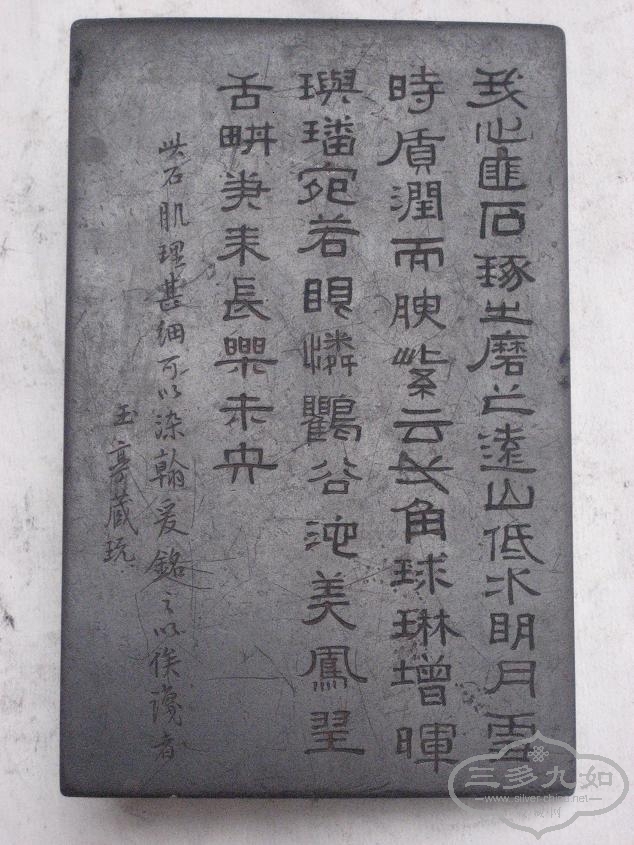 我心匪石琢之磨之遠山低水明月雪
時質潤而腴紫云角球琳增暉
璵璠宛若眼憐鸜谷池美鳳
舌畊耒長樂未央
此石肌理甚細可以染翰爰銘之以俟者
玉亭藏玩
三多九如
www.silver-china.net